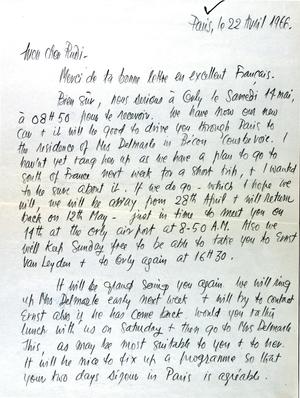 Paris, le 22 Avril 1966.
Mon cher
Merci de ta bonne lettre en excellent Français.
Bien sûr, nous serions à Orly le Samedi 14 mai,
à 08H50 pour te recevoir. We have now our new
car & it will be good to drive you through Paris to
the residence of Mrs Delmarle in Bécon Courbevoie. I
hav'nt yet rang her up as we have a plan to go to
South of France next week for a short trip, & I wanted
to be sure about it. If we do go - which I hope we
will, we will be away from 28th April & will return
back on 12th May - just in time to meet you on
14th at the Orly airport at 8-50 A.M. Also we
will keep Sunday free to be able to take you to Ernst
Van Leyden & to Orly again at 16H30.
It will be grand seeing you again. We will ring
up Mrs Delmarle early next week & will try to contact
Ernst also if he has come back. Would you take
lunch with us on Saturday & then go to Mrs Delmarle
This as may be most suitable to you & to her.
It will be nice to fix up a programme so that
your two days séjour in Paris is agréable.